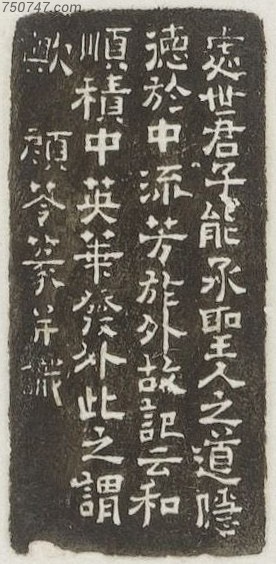 750747.com
處世君子能承聖人之道隱
德於中流芳於外故記云和
順積中英華發外此之謂
歟 顏苓篆并識